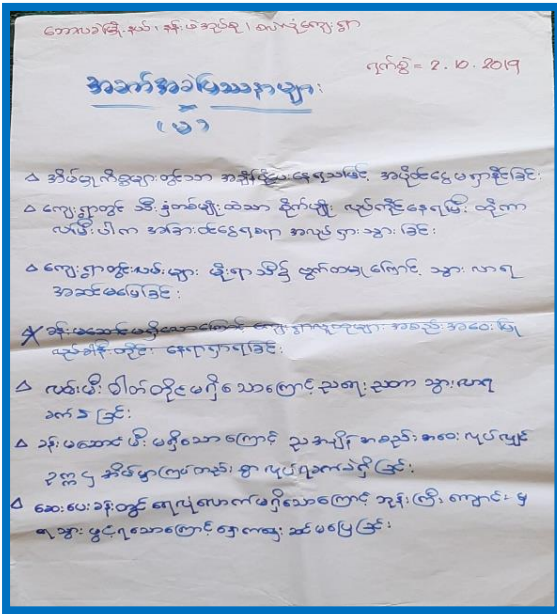 ဘောလခဲမြို့နယ်၊ နန်းဖဲအုပ်စု၊ ကျေးရွာ
ရက်စွဲ = 2.10.2019
အခက်အခဲပြဿနာများ
(မ)
△ အိမ်မှုကိစ္စများတွင်သာ အချိန်ပေးနေရသဖြင့် အပိုဝင်ငွေမရှာနိုင်ခြင်း
△ ကျေးရွာတွင် သီးနှံတစ်မျိုးထဲသာ စိုက်ပျိုး လုပ်ကိုင်နေရပြီး
အခြားဝင်ငွေရစရာ အလုပ်ရှားသွားခြင်း
△ ကျေးရွာတွင်းလမ်းများ မိုးရာသီ၌ ဗွက်ထမှုကြောင့် သွားလာရ
အဆင်မပြေခြင်း
ခန်းမဆောင်မရှိသောကြောင့် ကျေးရွာလူထုများ အစည်းအဝေးပြု
နေရာရှာရခြင်း
△ လမ်းမီး ဓါတ်တိုင်မရှိသောကြောင့် ညရေးညတာ သွားလာရ
ခက်ခဲခြင်း
△ ခန်းမဆောင်ကြီး မရှိသောကြောင့် ညအချိန် အစည်းအဝေး လုပ်လျှင်
ဥက္ကဌ အိမ်မှာကြပ်တည်းစွာ လုပ်ရခက်ခဲရှိခြင်း
△ ဆေးပေးခန်းတွင် ရေလုံလောက်မရှိသောကြောင့် ဘုန်းကြီးကျောင်းမှ
ရေသွား ရသောကြောင့် ဆင်မပြေခြင်း